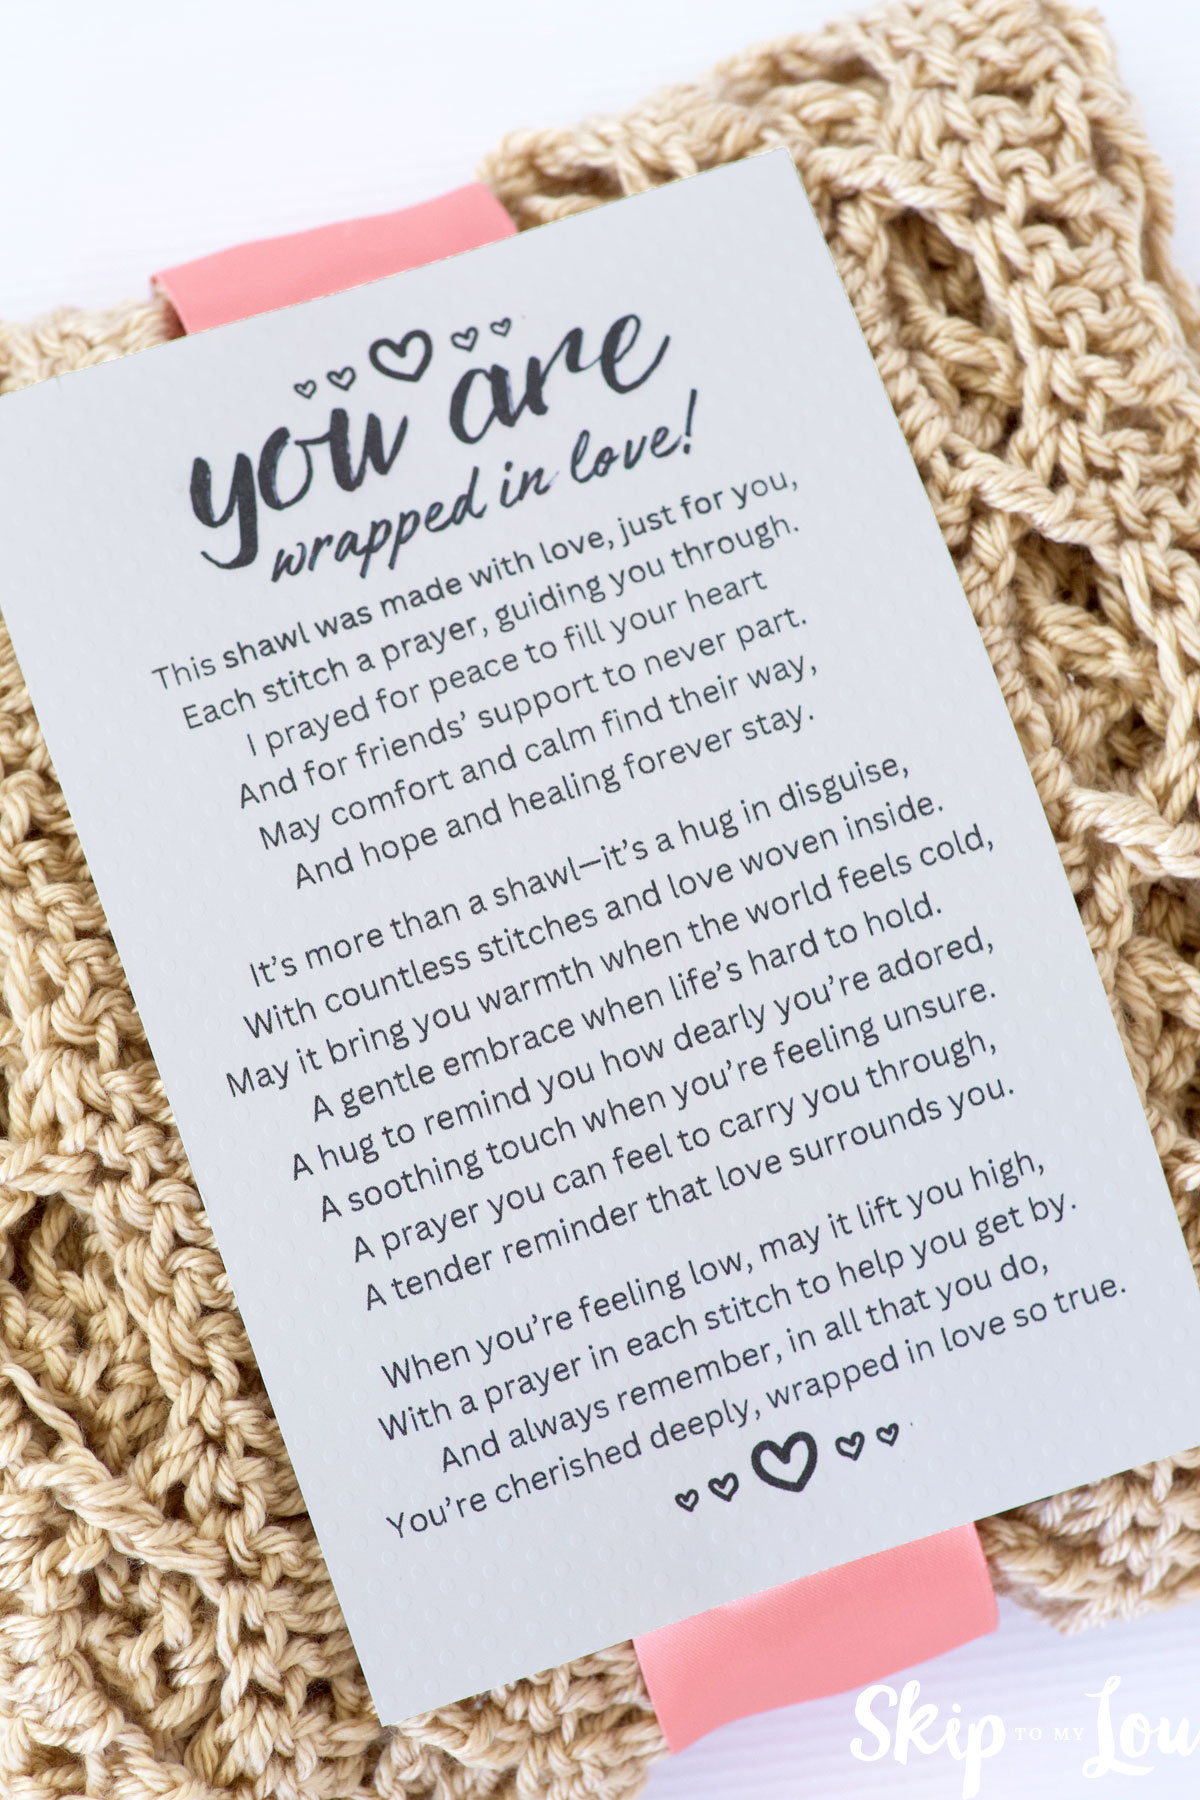 you are
wrapped in love!
This shawl was made with love, just for you,
Each stitch a prayer, guiding you through.
I prayed for peace to fill your heart
And for friends’ support to never part.
May comfort and calm find their way,
And hope and healing forever stay.
It’s more than a shawl—it’s a hug in disguise,
With countless stitches and love woven inside.
May it bring you warmth when the world feels cold,
A gentle embrace when life’s hard to hold.
A hug to remind you how dearly you’re adored,
A soothing touch when you’re feeling unsure.
A prayer you can feel to carry you through,
A tender reminder that love surrounds you.
When you’re feeling low, may it lift you high,
With a prayer in each stitch to help you get by.
And always remember, in all that you do,
You’re cherished deeply, wrapped in love so true.
Skip TO MY Lou